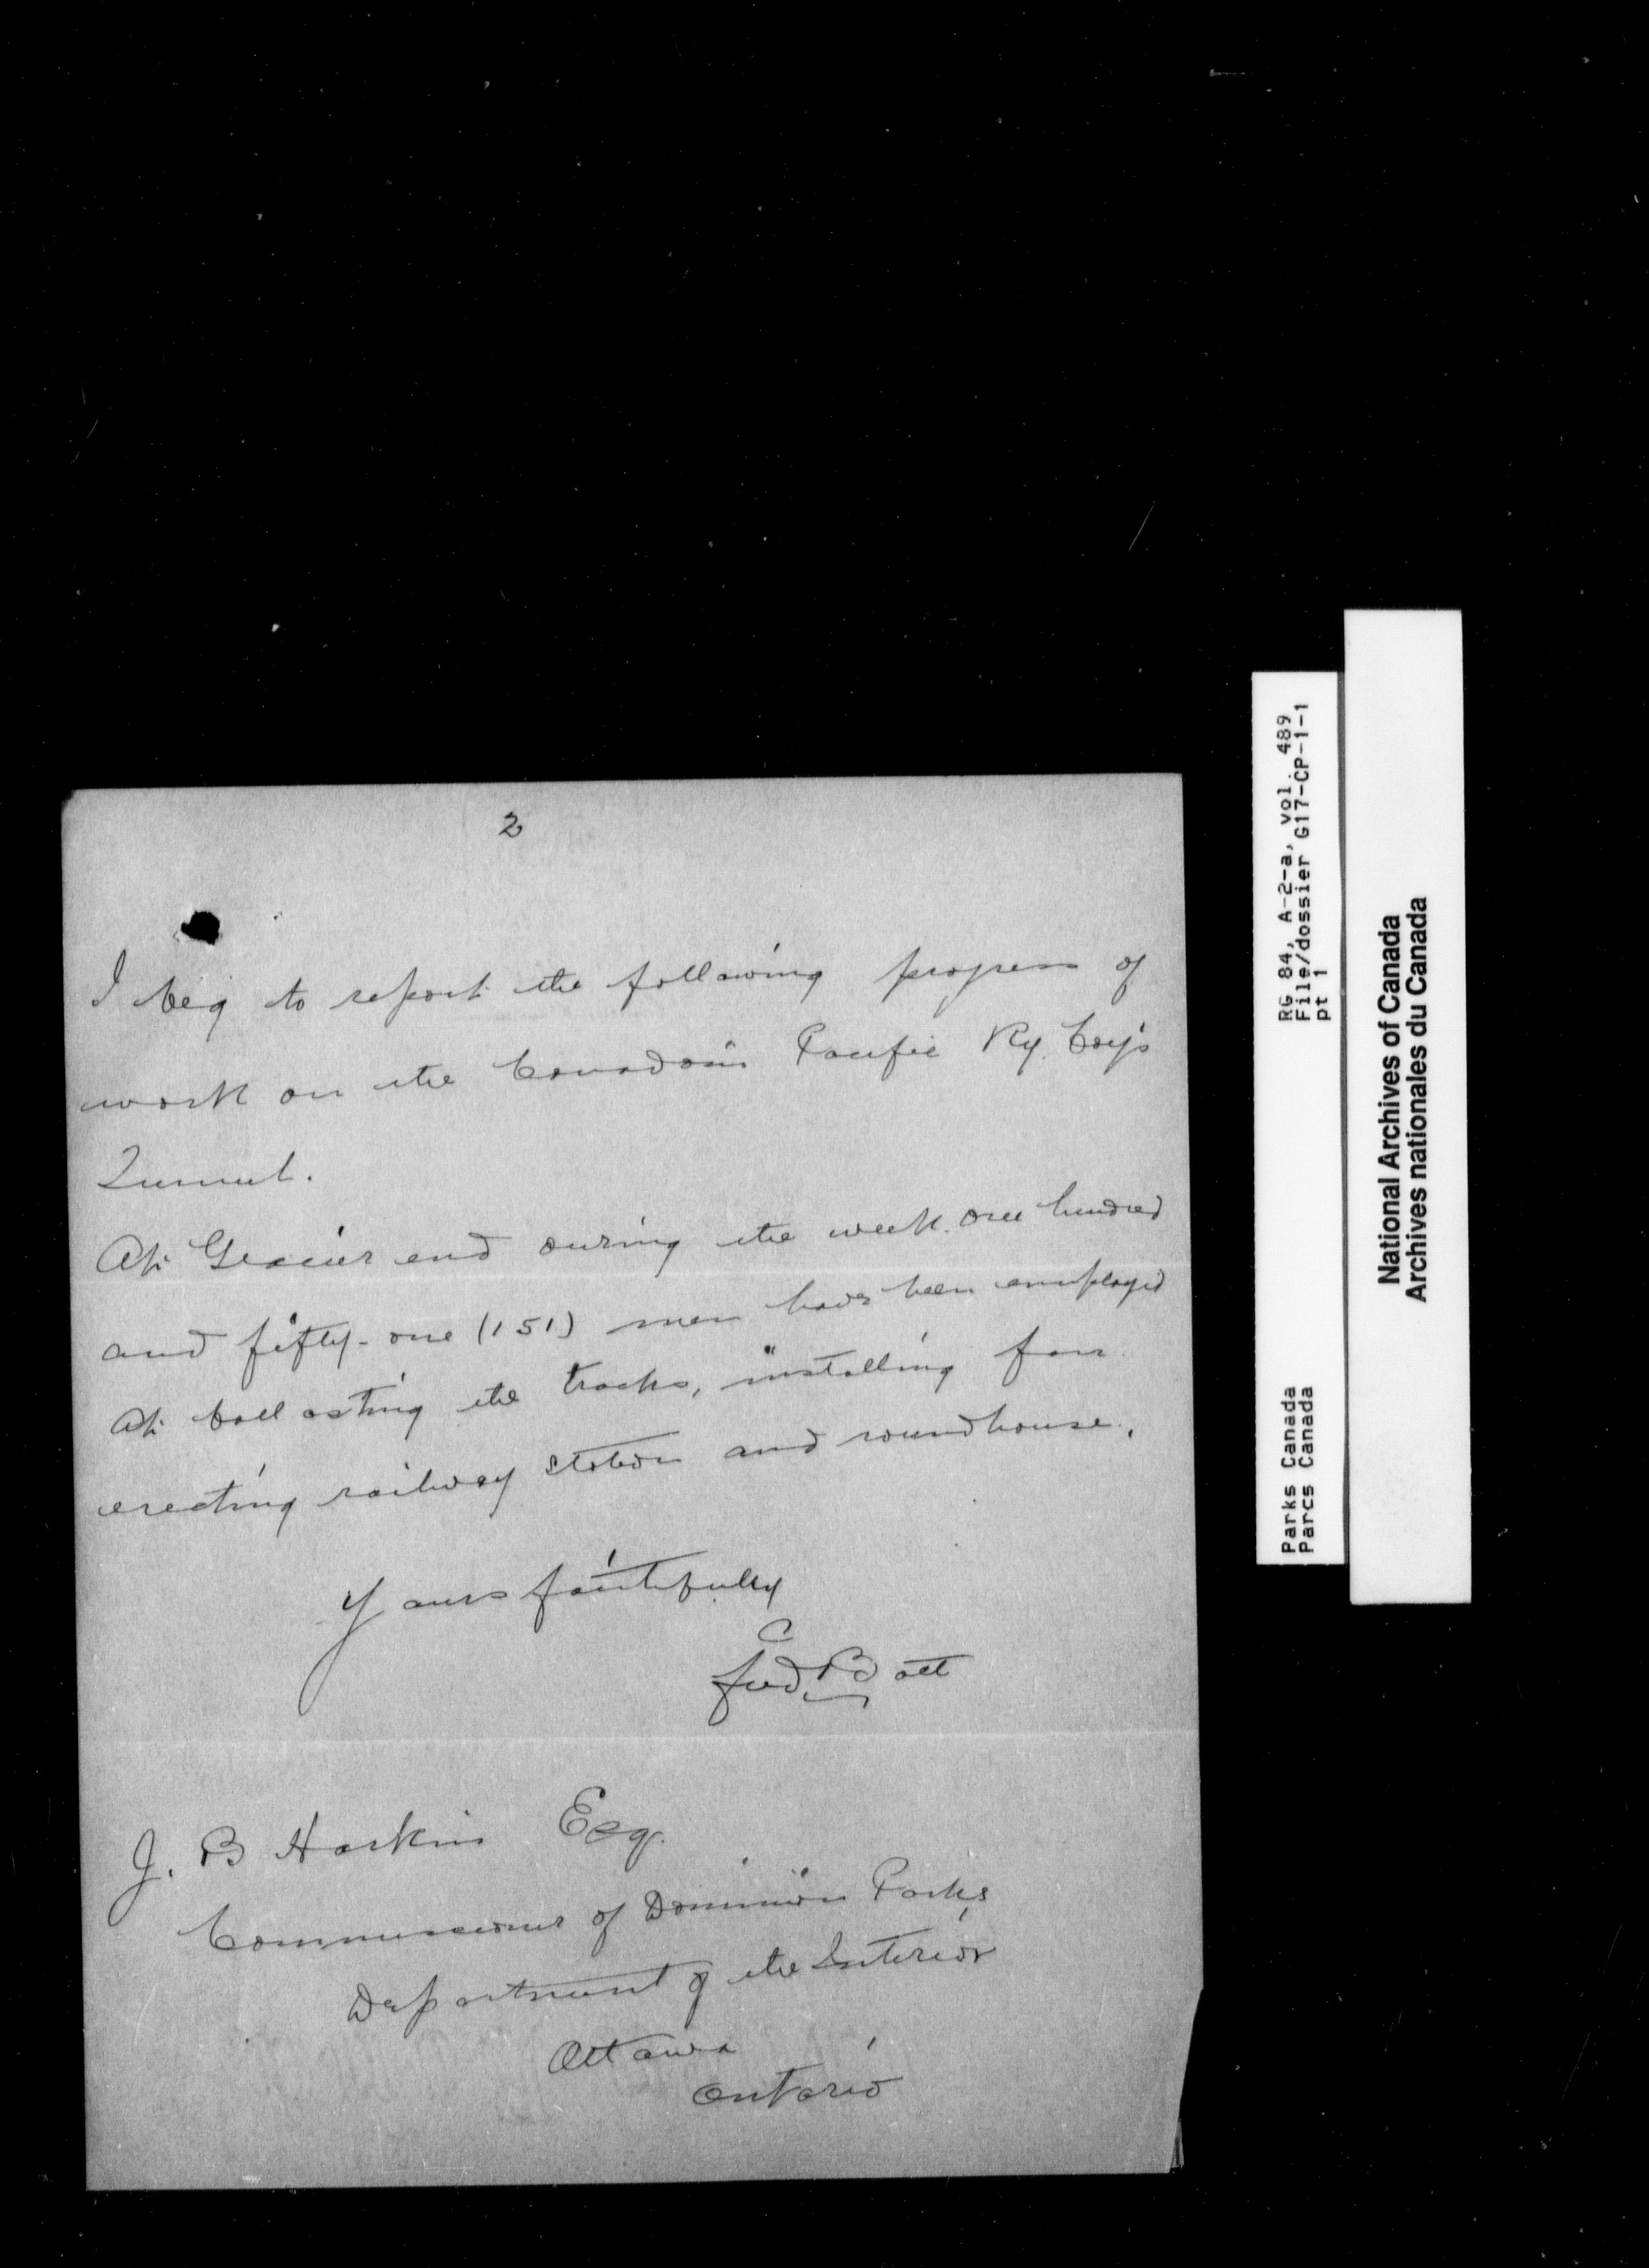 2
I beg to report the following progress of
work on the Canadian Pacific Ry. Coy's
Tunnel.
At Glacier end during the week one hundred
and fifty-one (151) men have been employed
at ballasting the tracks, installing fan
erecting railway station and roundhouse.
Yours faithfully
J. B Harkin Esq.
Commissioner of Dominion Parks
Department of the Interior
Ottawa
Ontario
RG 84, A-2-a, vol. 489
File/dossier G17-CP-1-1
pt 1
Parks Canada
Parcs Canada
National Archives of Canada
Archives nationales du Canada